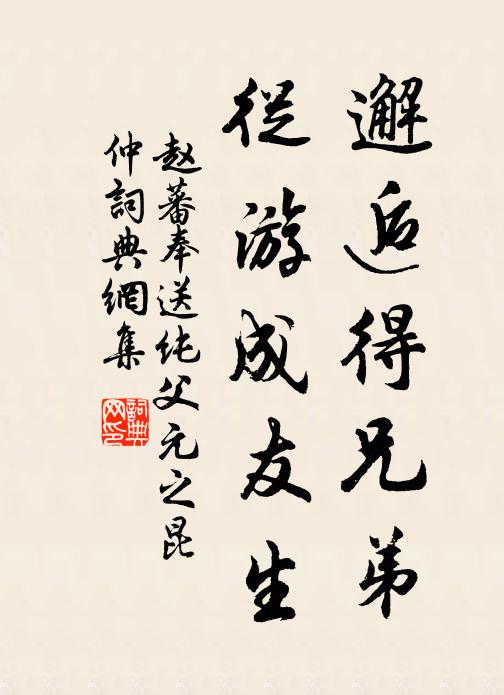 邂逅得兄弟
從游成友生
赵蕃奉送纯父元之昆
仲詞典網集
詞典
网印